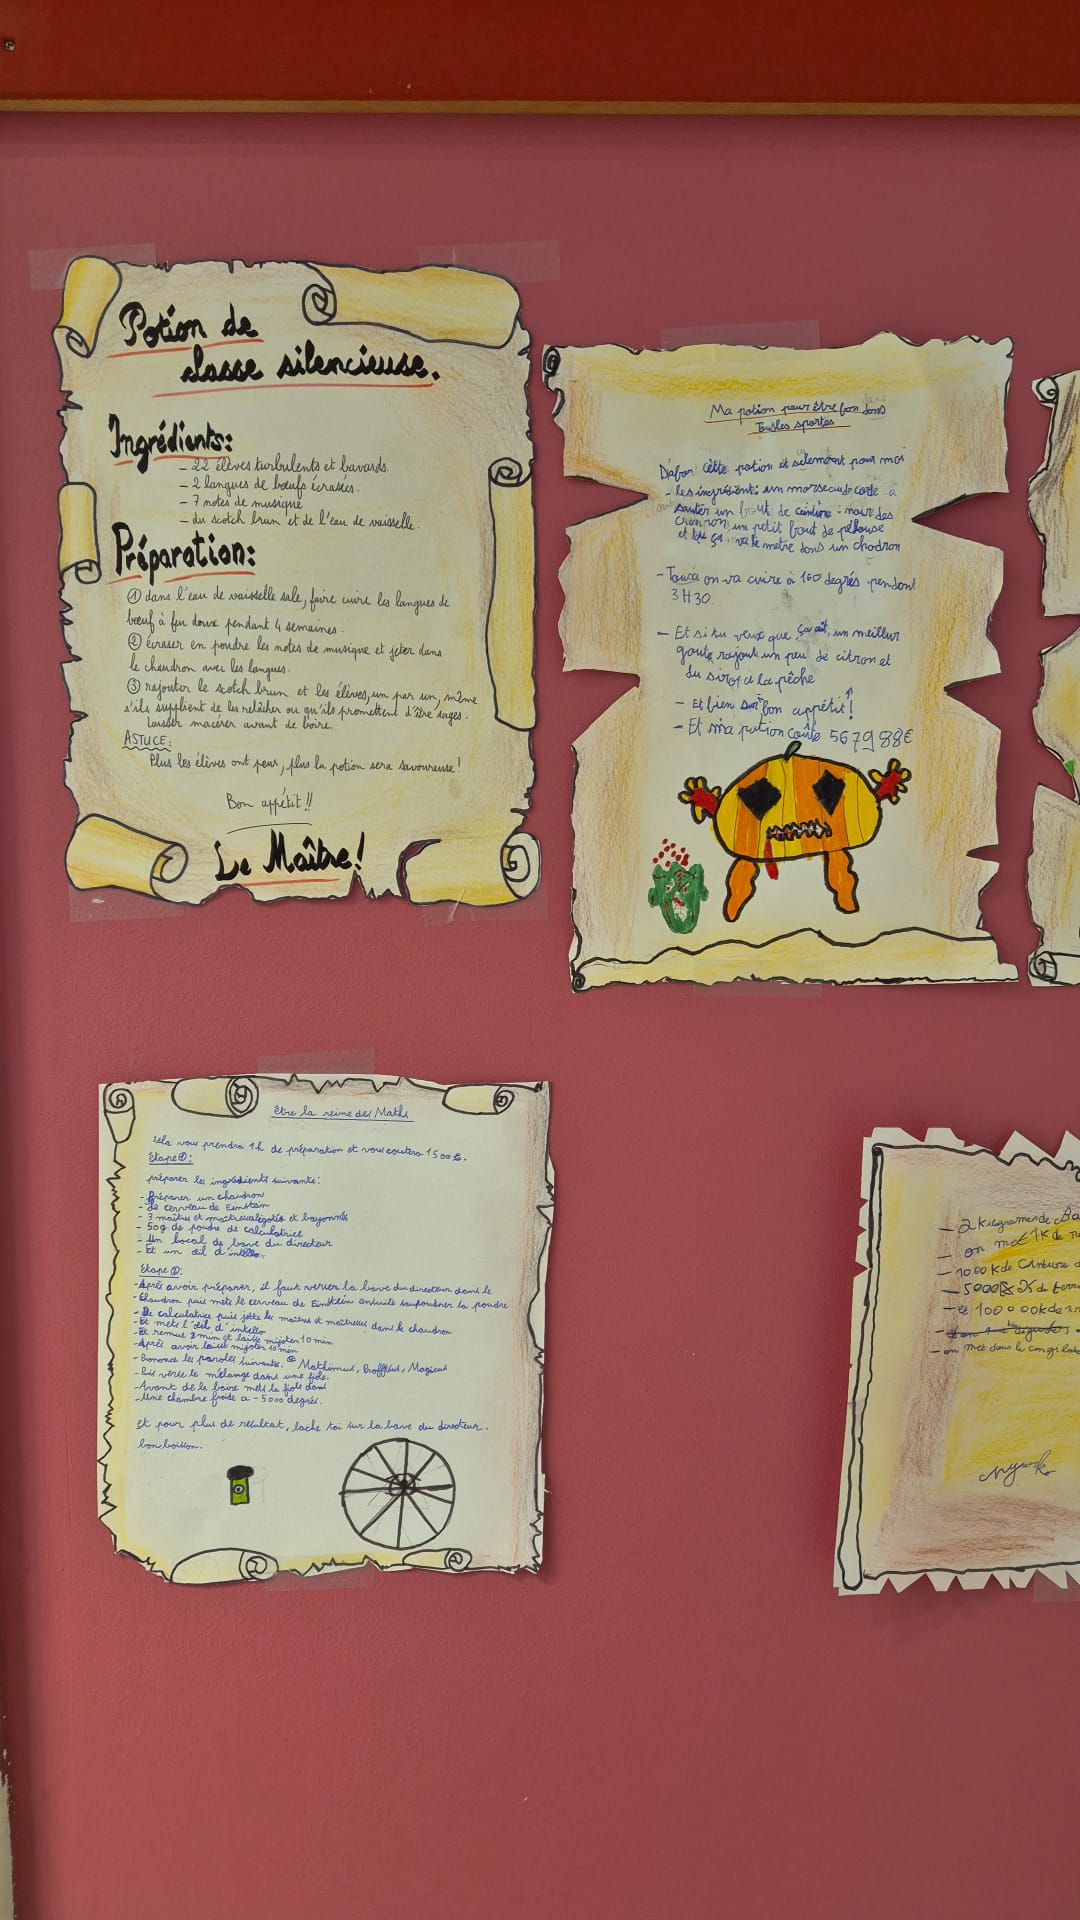 Potion de
classe silencieuse.
Ingrédients:
- 22 élèves turbulents et bavards.
- 2 langues de bœufs écrasées.
- 7 notes de musique
- du scotch brun et de l'eau de vaisselle.
Préparation:
① dans l'eau de vaisselle sale, faire cuire les langues de
bœuf à feu doux pendant 4 semaines.
② écraser en poudre les notes de musique et jeter dans
le chaudron avec les langues.
③ rajouter le scotch brun et les élèves, un par un, même
s'ils supplient de les relâcher ou qu'ils promettent d'être sages.
Laisser macérer avant de boire.
ASTUCE:
Plus les élèves ont peur, plus la potion sera savoureuse!
Bon appétit!!
Le Maître!
Ma potion pour être bon dans
Tous les sportes
cette potion et selement pour moi
- les ingrédient: un morseau de corde a
sauter un bout de ceinture noir des
un petit bout de pelouse
et tou ça va le metre dans un chodron
- Tousa on va cuire à 160 degrés pendant
3H30
- Et si tu veux que ça ait un meilleur
goute rajoute un peu de citron et
du sirop a la pêche
- Et bien bon appétit!
- Et ma potion coûte 567988€
Être la reine des Maths
sela vous prendra 1h de préparation et vous coutera 1500€.
Etape①:
préparer les ingrédients suivants:
- Préparer un chaudron
- Le cerveau de Einstein
- 3 maîtres et maîtresses ligotés et bayonnés
- 50g de poudre de calculatrice
- Un bocal de bave du directeur
- Et un œil d'intello.
Etape②:
- Après avoir préparer, il faut verser la bave du directeur dans le
- Chaudron puis mets le cerveau de Einstein ensuite supoudrer la poudre
- De calculatrice puis jette les maîtres et maîtresses dans le chaudron
- Et mets l'œil d'intello
- Et remue 2min et laisse mijoter 10 min
- Après avoir laissé mijoter 10 min
- Prononce les paroles suivantes: Mathimus, Proffesus, Magicus
- Puis verse le mélange dans une fiole.
- Avant de le boire mets la fiole dans
- Une chambre froide a -5000 degrés.
et pour plus de résultat, lache toi sur la bave du directeur.
bon boisson.
- 2 kilogrames de
- on met 1K de
- 1000K de
- 5000
- et 10000K de
- on met dans le